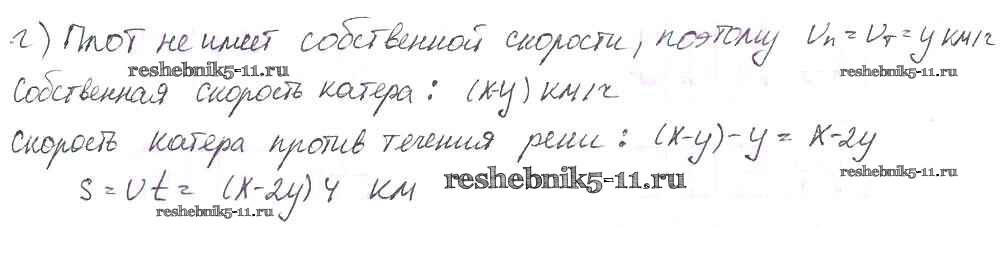 г) Плот не имеет собственной скорости, поэтому Vп = Vт = y км/ч
reshebnik5-11.ru
reshebnik5-11.ru
Собственная скорость катера: (x-y) км/ч
Скорость катера против течения реки: (x-y)-y = x-2y
S = Vt = (x-2y) 4 км
reshebnik5-11.ru
reshebnik5-11.ru
reshebnik5-11.ru